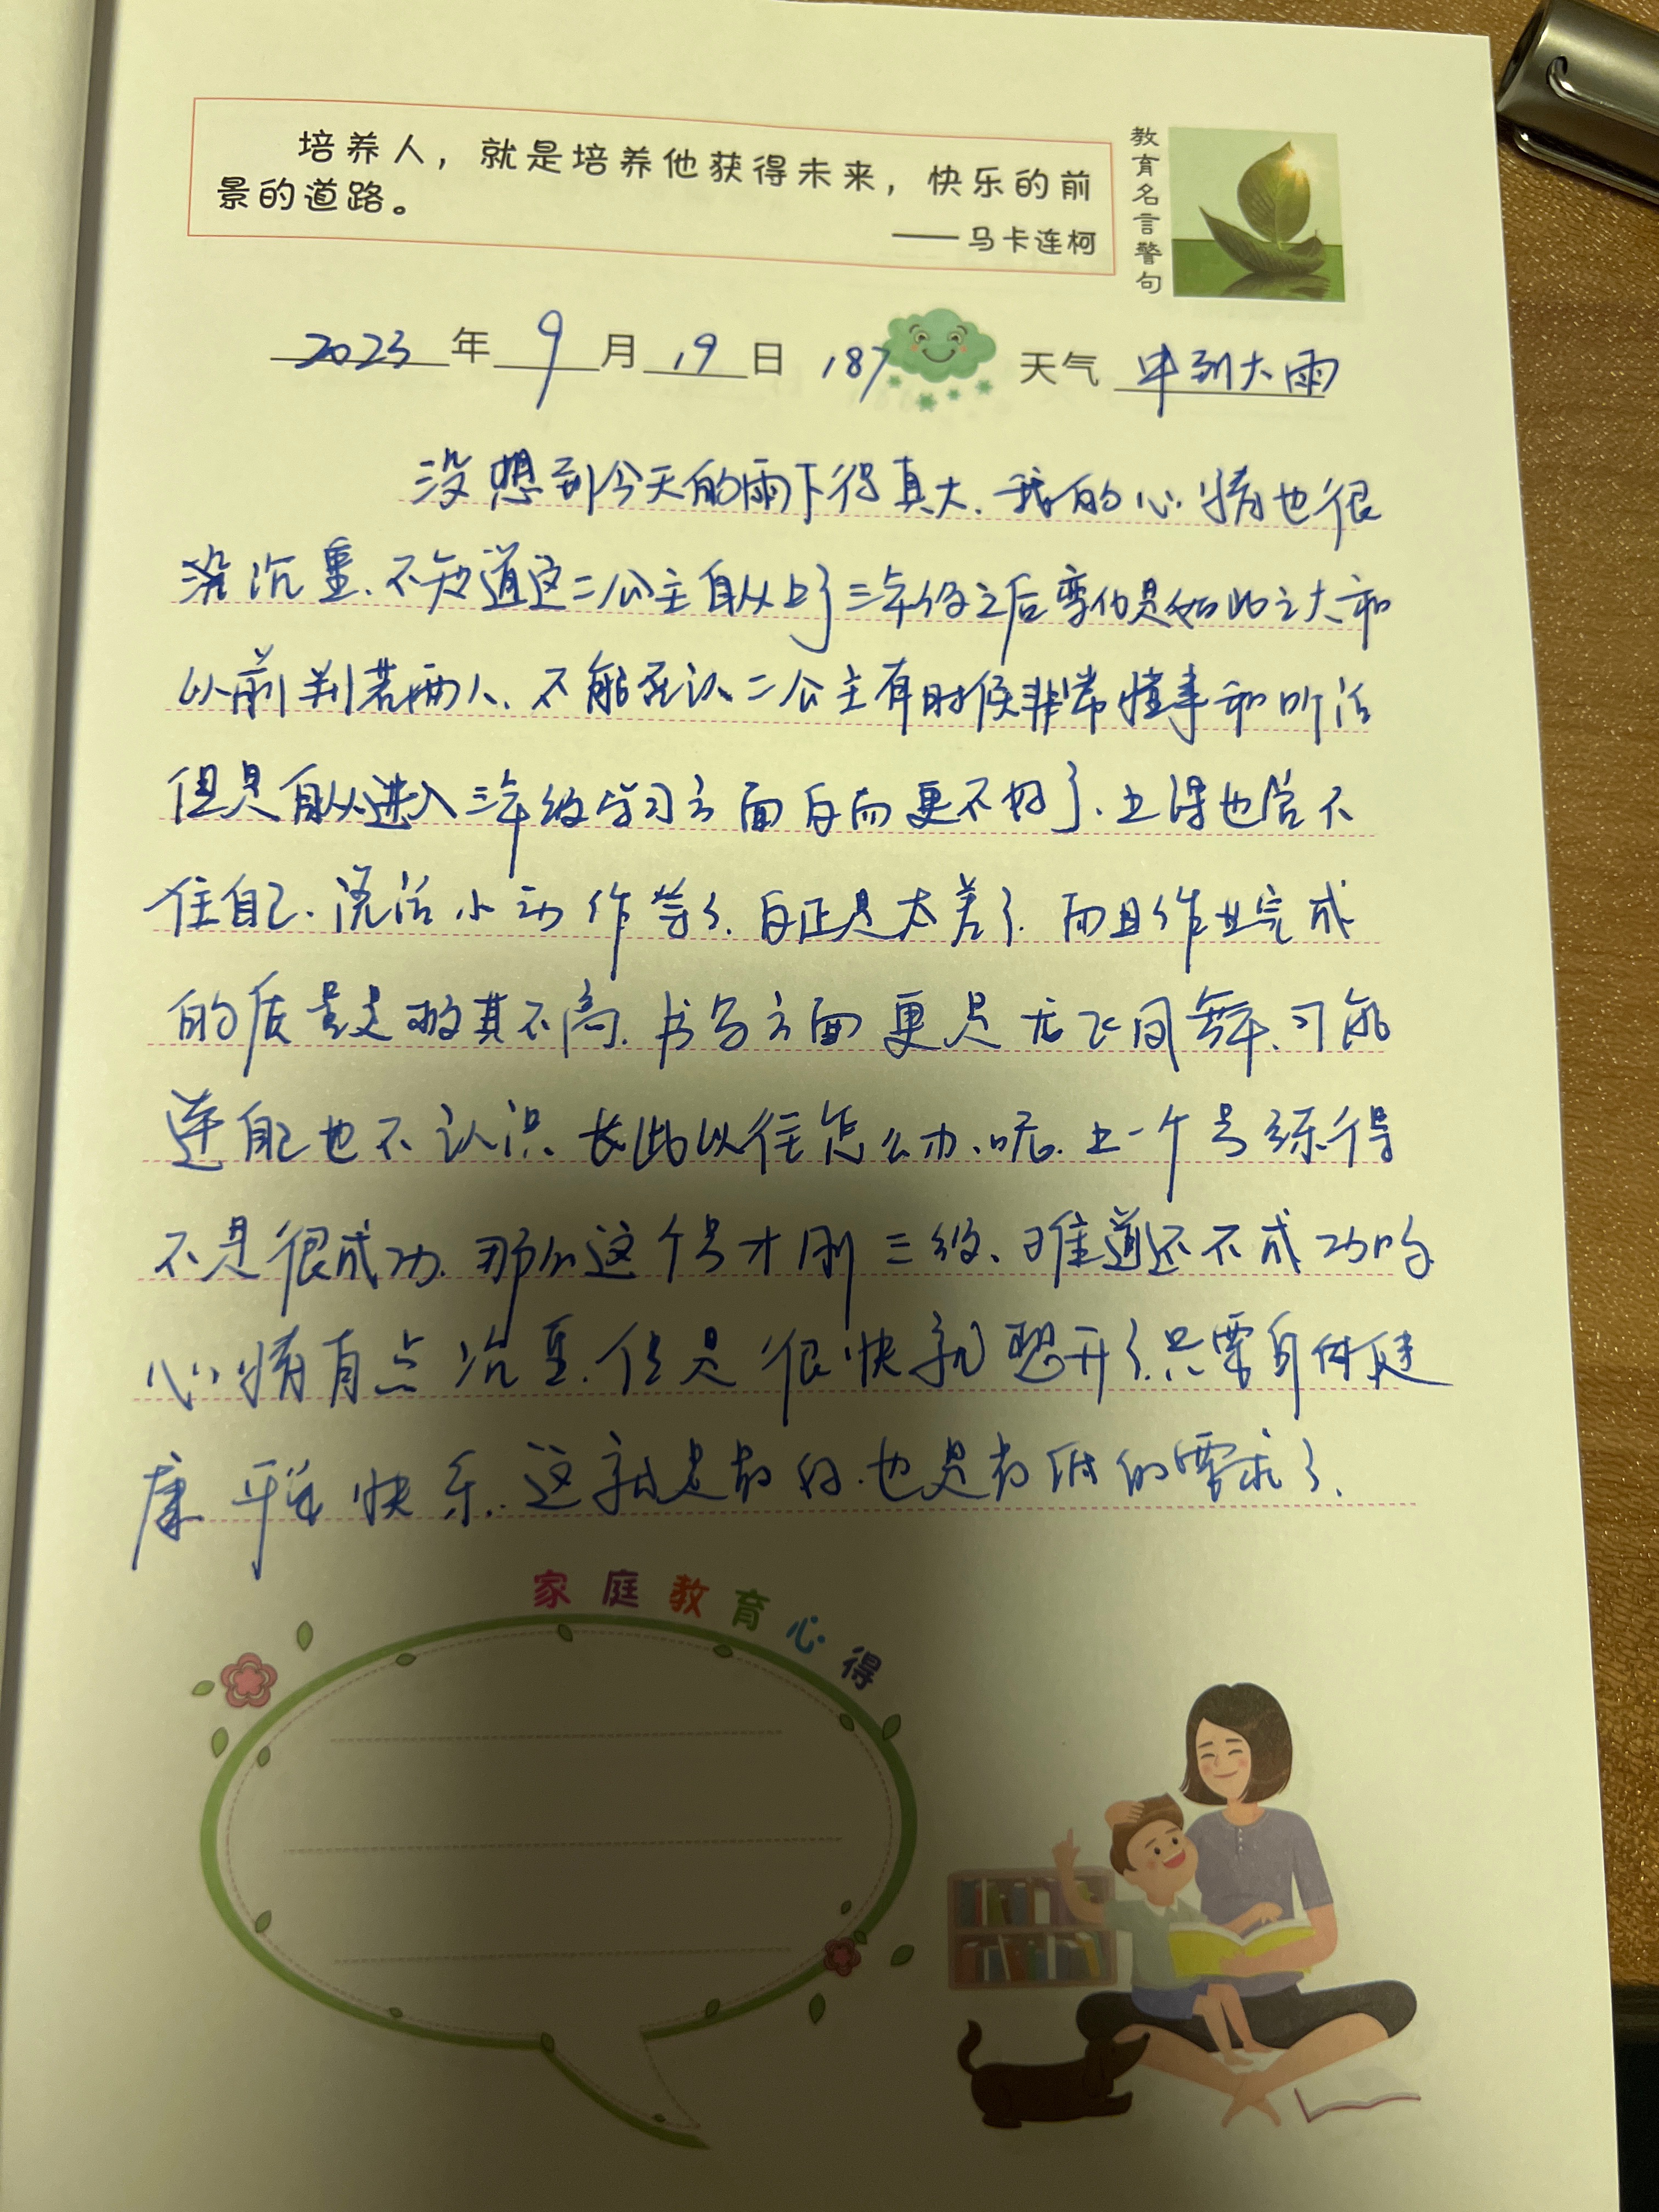 培养人，就是培养他获得未来，快乐的前
景的道路。
——马卡连柯
教育名言警句
2023年9月19日 187 天气 中到大雨
没想到今天的雨下得真大.我的心情也很
沉重.不知道这二公主自从上了三年级之后变化是如此之大和
以前判若两人.不能否认二公主有时候非常懂事和听话
但是自从进入三年级学习方面反而更不好了.上课也管不
住自己.说话小动作等等.反正是太差了.而且作业完成
的质量是极其不高.书写方面更是龙飞凤舞.可能
连自己也不认识.长此以往怎么办呢.上一个号练得
不是很成功.那么这个号才刚三级.难道还不成功吗
心情有点沉重.但是很快就想开了只要身体健
康平安快乐.这就是最好.也是最低的需求了.
家庭教育心得